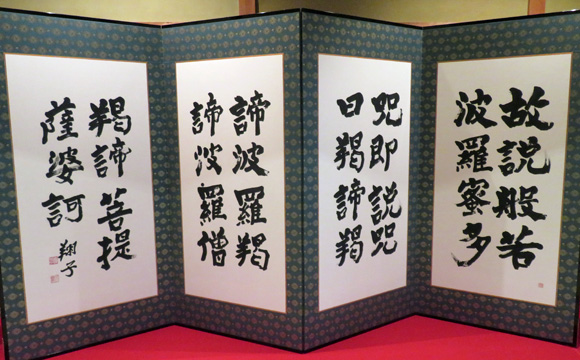 故説般若
波羅蜜多
咒即説咒
曰羯諦羯
諦波羅羯
諦波羅僧
羯諦菩提
薩婆訶
翔子